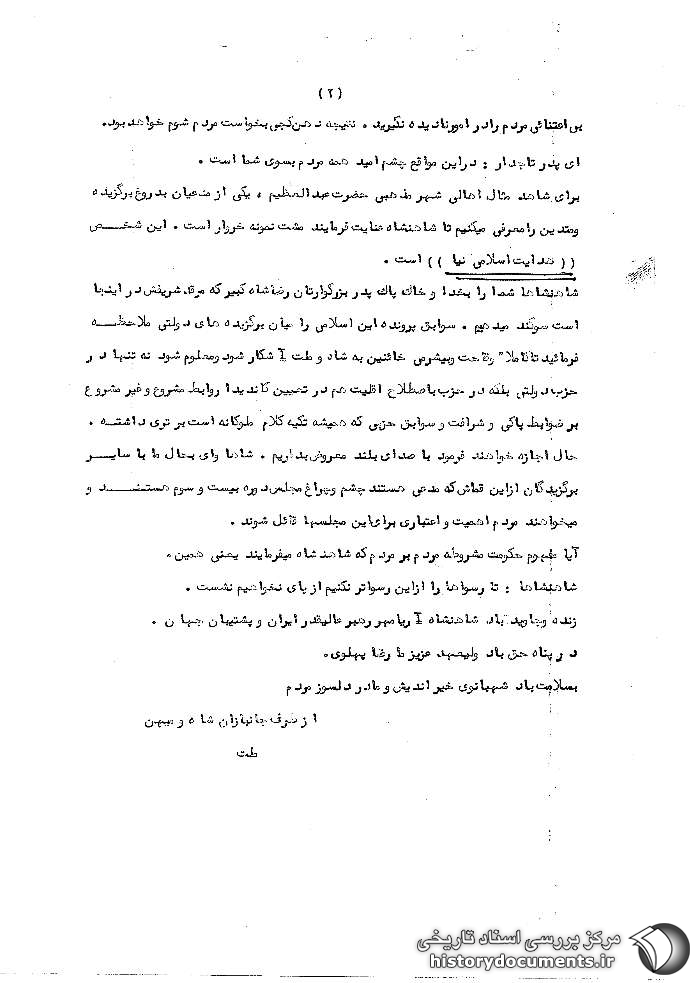 (۲)
بی اعتنائی مردم را در امور نادیده نگیرید . نتیجه دهن کجی بخواست مردم شوم خواهد بود.
ای پدر تاجدار : در این مواقع چشم امید همه مردم بسوی شما است .
برای شاهد مثال اهالی شهر مذهبی حضرت عبدالعظیم ، یکی از مدعیان بدروغ برگزیده
ومتدین را معرفی میکنیم تا شاهنشاه عنایت فرمایند مشت نمونه خروار است . این شخص
(( هدایت اسلامی نیا )) است .
شاهنشاها شما را بخدا و خاک پاک پدر بزرگوارتان رضا شاه کبیر که مرقد شریفش در اینجا
است سوگند میدهیم . سوابق پرونده این اسلامی را میان برگزیده های دولتی ملاحظه
فرمائید تا کاملا" وقاحت وبیشرمی خائنین به شاه و ملت آشکار شود ومعلوم شود نه تنها در
حزب دولتی بلکه در حزب باصطلاح اقلیت هم در تعیین کاندیدا روابط مشروع و غیر مشروع
بر ضوابط پاکی و شرافت و سوابق حزبی که همیشه تکیه کلام ملوکانه است برتری داشته .
حال اجازه خواهند فرمود با صدای بلند معروض بداریم . شاها وای بحال ما با سایر
برگزیدگان از این قماش که مدعی هستند چشم وچراغ مجلس دوره بیست و سوم هستند و
میخواهند مردم اهمیت و اعتباری برای این مجلسها قائل شوند .
آیا مفهوم حکومت مشروطه مردم بر مردم که شاهنشاه میفرمایند یعنی همین .
شاهنشاها : تا رسواها را از این رسواتر نکنیم از پای نخواهیم نشست .
زنده وجاوید باد شاهنشاه آریامهر رهبر عالیقدر ایران و پشتیبان جهان .
در پناه حق باد ولیعهد عزیز ما رضا پهلوی.
بسلامت باد شهبانوی خیر اندیش و مادر دلسوز مردم
از طرف جانبازان شاه و میهن
ملت
مرکز بررسی اسناد تاریخی
historydocuments.ir